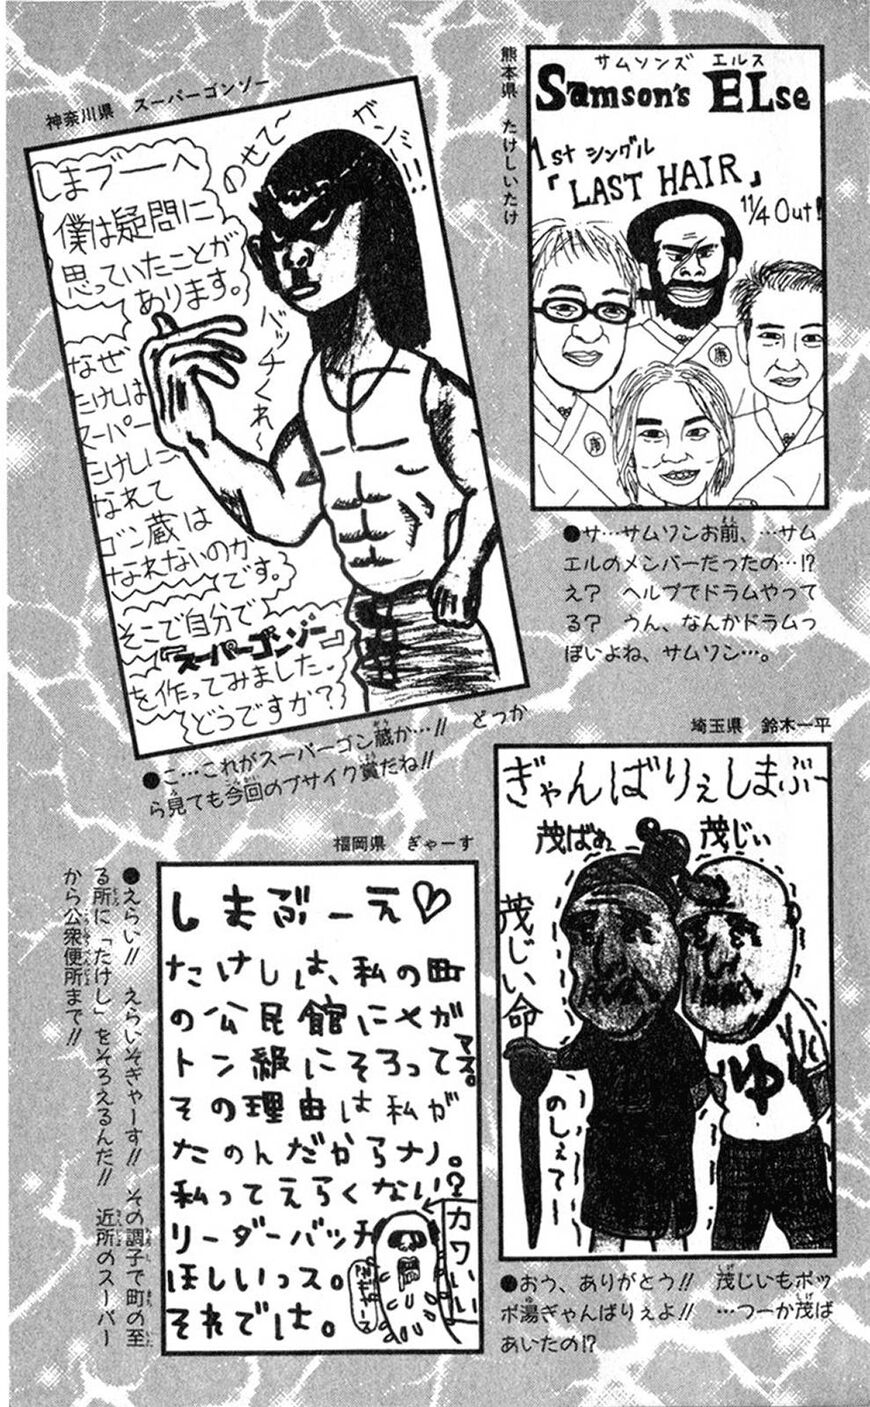 熊本県 たけしいたけ
サムソンズ エルス
Samson's ELse
1st シングル
「LAST HAIR」
11/4 Out!
廉
廉
●サ…サムソンお前、…サム
エルのメンバーだったの…!?
え? ヘルプでドラムやって
る? うん、なんかドラムっ
ぽいよね、サムソン…。
神奈川県 スーパーゴンゾー
しまブーへ
僕は疑問に
思っていたことが
あります。
なぜ
たけしは
スーパー
たけしに
なれて
ゴン蔵は
なれないのか
です。
そこで自分で
『スーパーゴンゾー』
を作ってみました。
どうですか?
のせて〜
ガンミー!!
バッチくれ〜
●こ…これがスーパーゴン蔵か…!! どっか
ら見ても今回のブサイク賞だね!!
埼玉県 鈴木一平
ぎゃんばりぇしまぶー
茂ばぁ
茂じぃ
茂じい命
のしぇてー
ゆ
●おう、ありがとう!! 茂じいもポッ
ポ湯ぎゃんばりぇよ!! …つーか茂ば
あいたの!?
福岡県 ぎゃーす
しまぶーえ♡
たけしは、私の町
の公民館にメガ
トン級にそろってマス。
その理由は私が
たのんだからナノ。
私ってえらくない?
リーダーバッチ
ほしいっス。
それでは。
カワいい
●えらい!! えらいぞぎゃーす!! その調子で町の至
る所に「たけし」をそろえるんだ!! 近所のスーパー
から公衆便所まで!!